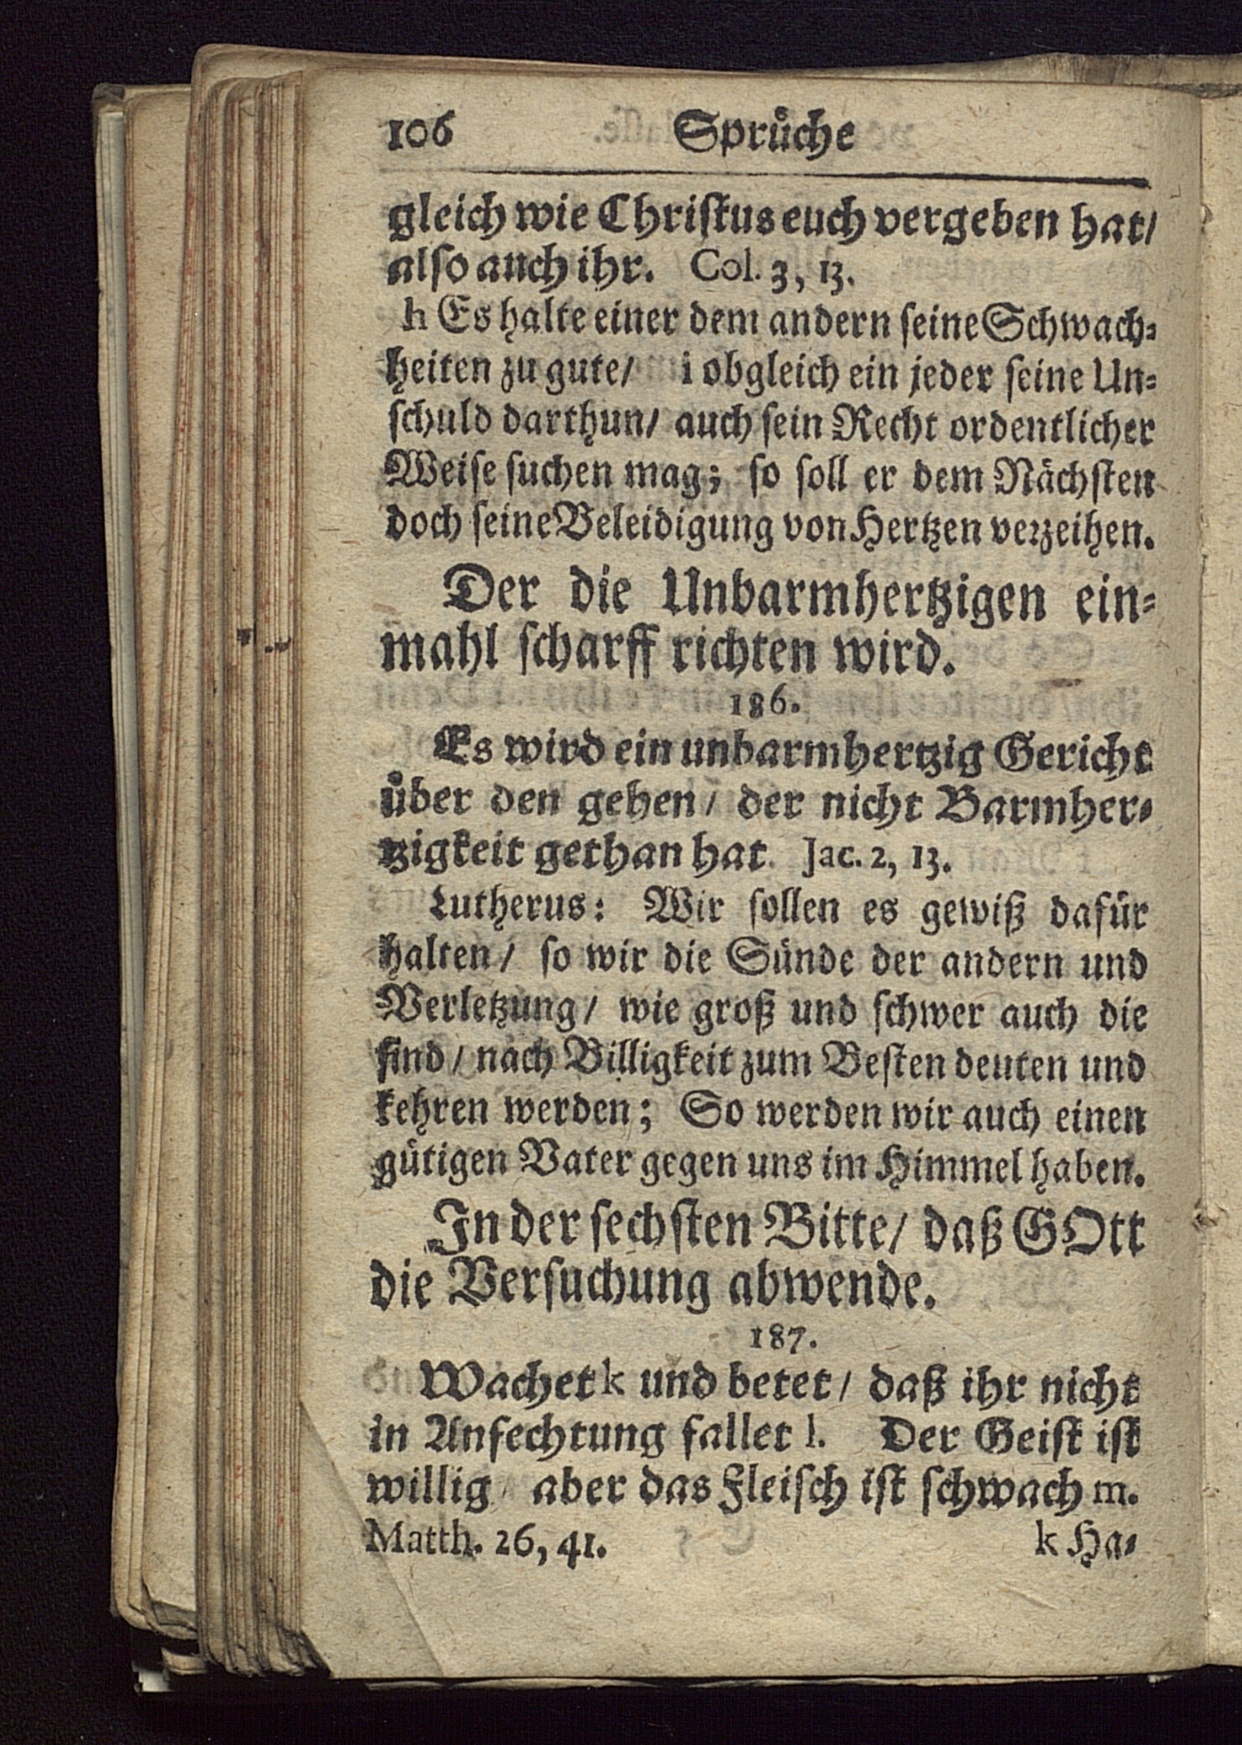 106 Sprüche
gleich wie Christus euch vergeben hat/
also auch ihr. Col. 3, 13.
h Es halte einer dem andern seine Schwach-
heiten zu gute/ i obgleich ein jeder seine Un-
schuld darthun/ auch sein Recht ordentlicher
Weise suchen mag; so soll er dem Nächsten
doch seine Beleidigung von Hertzen verzeihen.
Der die Unbarmhertzigen ein-
mahl scharff richten wird.
186.
Es wird ein unbarmhertzig Gericht
über den gehen/ der nicht Barmher-
tzigkeit gethan hat. Jac. 2, 13.
Lutherus: Wir sollen es gewiß dafür
halten/ so wir die Sünde der andern und
Verletzung/ wie groß und schwer auch die
sind/ nach Billigkeit zum Besten deuten und
kehren werden; So werden wir auch einen
gütigen Vater gegen uns im Himmel haben.
In der sechsten Bitte/ daß GOtt
die Versuchung abwende.
187.
Wachet k und betet/ daß ihr nicht
in Anfechtung fallet l. Der Geist ist
willig/ aber das Fleisch ist schwach m.
Matth. 26, 41. k Ha-